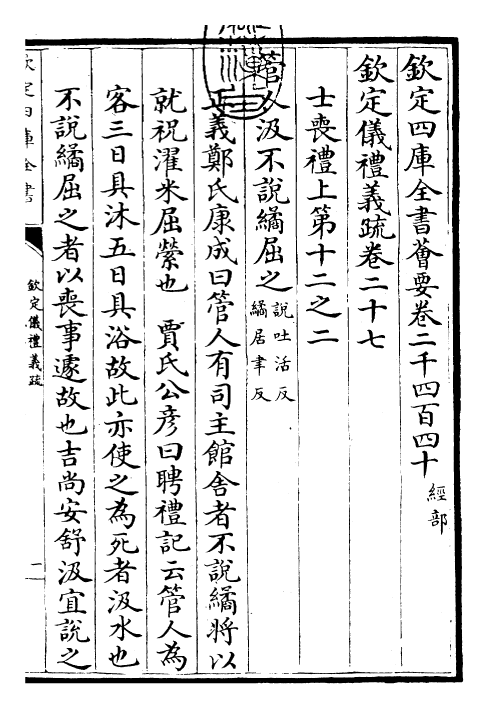 欽定四庫全書薈要卷二千四百四十 經部
欽定儀禮義疏卷二十七
士喪禮上第十二之二
管人汲不說繘屈之 說吐活反 繘居聿反
正義鄭氏康成曰管人有司主館舍者不說繘將以
就祝濯米屈縈也 賈氏公彦曰聘禮記云管人為
客三日具沐五日具浴故此亦使之為死者汲水也
不說繘屈之者以喪事遽故也吉尚安舒汲宜說之
欽定四庫全書
欽定儀禮義疏
一